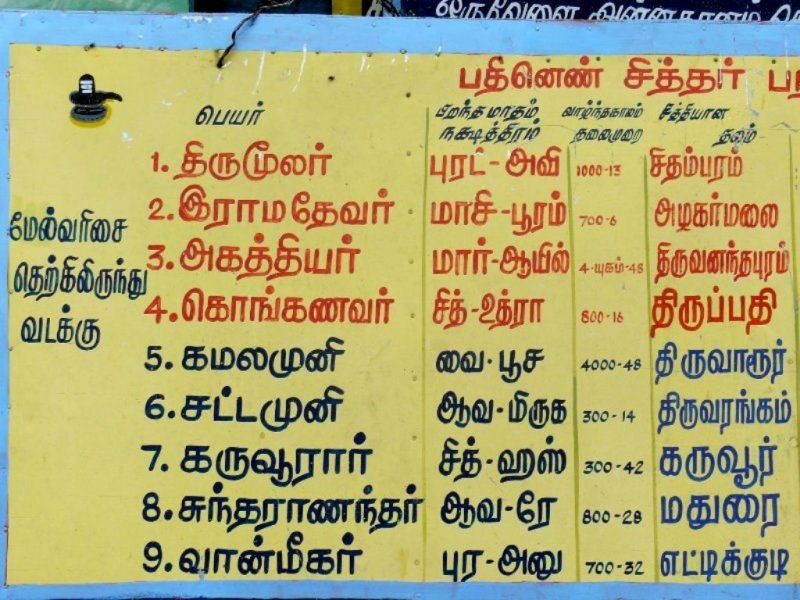 ஒருவேளை அன்னதானம்
பதினெண் சித்தர்
பெயர் பிறந்த மாதம் வாழ்ந்தகாலம் சித்தியான
நக்ஷத்திரம் தலைமுறை தலம்
1. திருமூலர் புரட்-அவி 1000-13 சிதம்பரம்
2. இராமதேவர் மாசி-பூரம் 700-6 அழகர்மலை
மேல்வரிசை
3. அகத்தியர் மார்-ஆயில் 4-யுகம்-48 திருவனந்தபுரம்
தெற்கிலிருந்து
4. கொங்கணவர் சித்-உத்ரா 800-16 திருப்பதி
வடக்கு
5. கமலமுனி வை-பூச 4000-48 திருவாரூர்
6. சட்டமுனி ஆவ-மிருக 300-14 திருவரங்கம்
7. கருவூரார் சித்-ஹஸ் 300-42 கருவூர்
8. சுந்தராணந்தர் ஆவ-ரே 800-28 மதுரை
9. வான்மீகர் புர-அனு 700-32 எட்டிக்குடி